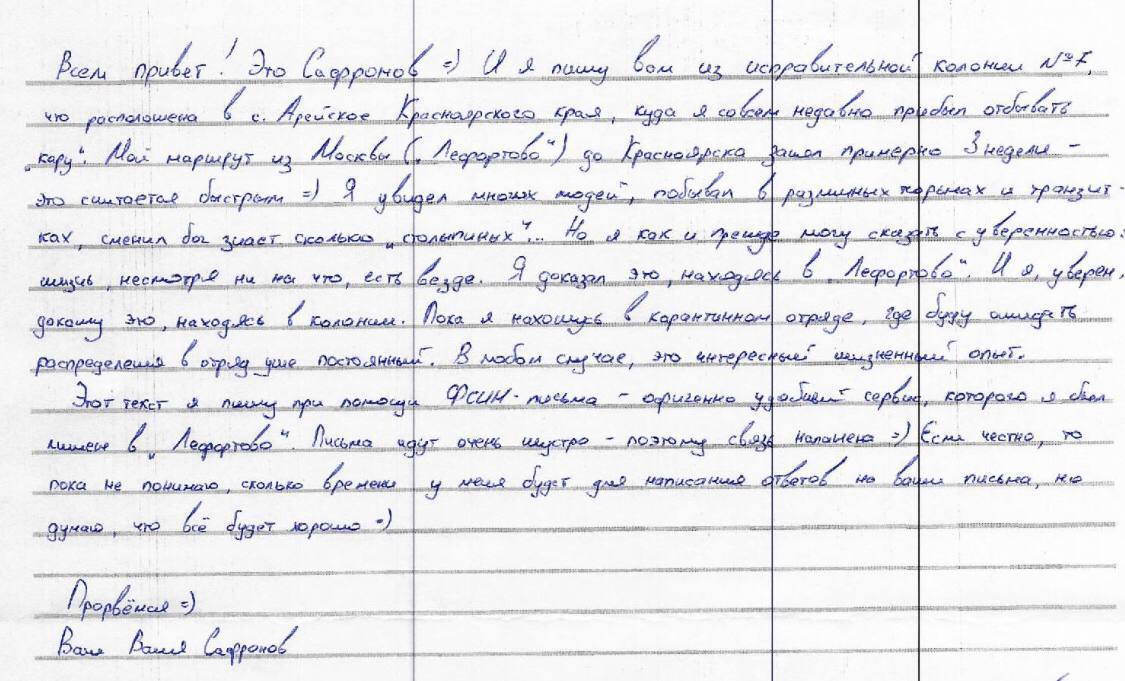 Всем привет! Это Сафронов =) И я пишу вам из исправительной колонии №7,
что расположена в с. Арейское Красноярского края, куда я совсем недавно прибыл отбывать
„кару“. Мой маршрут из Москвы („Лефортово“) до Красноярска занял примерно 3 недели –
это считается быстрым =) Я увидел многих людей, побывал в различных тюрьмах и транзит-
ках, сменил бог знает сколько „столыпиных“... Но я как и прежде могу сказать с уверенностью:
жизнь, несмотря ни на что, есть везде. Я доказал это, находясь в „Лефортово“. И я, уверен,
докажу это, находясь в колонии. Пока я нахожусь в карантинном отряде, где буду ожидать
распределения в отряд уже постоянный. В любом случае, это интересный жизненный опыт.
Этот текст я пишу при помощи ФСИН-письма – офигенно удобный сервис, которого я был
лишен в „Лефортово“. Письма идут очень шустро – поэтому связь налажена =) Если честно, то
пока не понимаю, сколько времени у меня будет для написания ответов на ваши письма, но
думаю, что всё будет хорошо =)
Прорвёмся =)
Ваш Ваня Сафронов